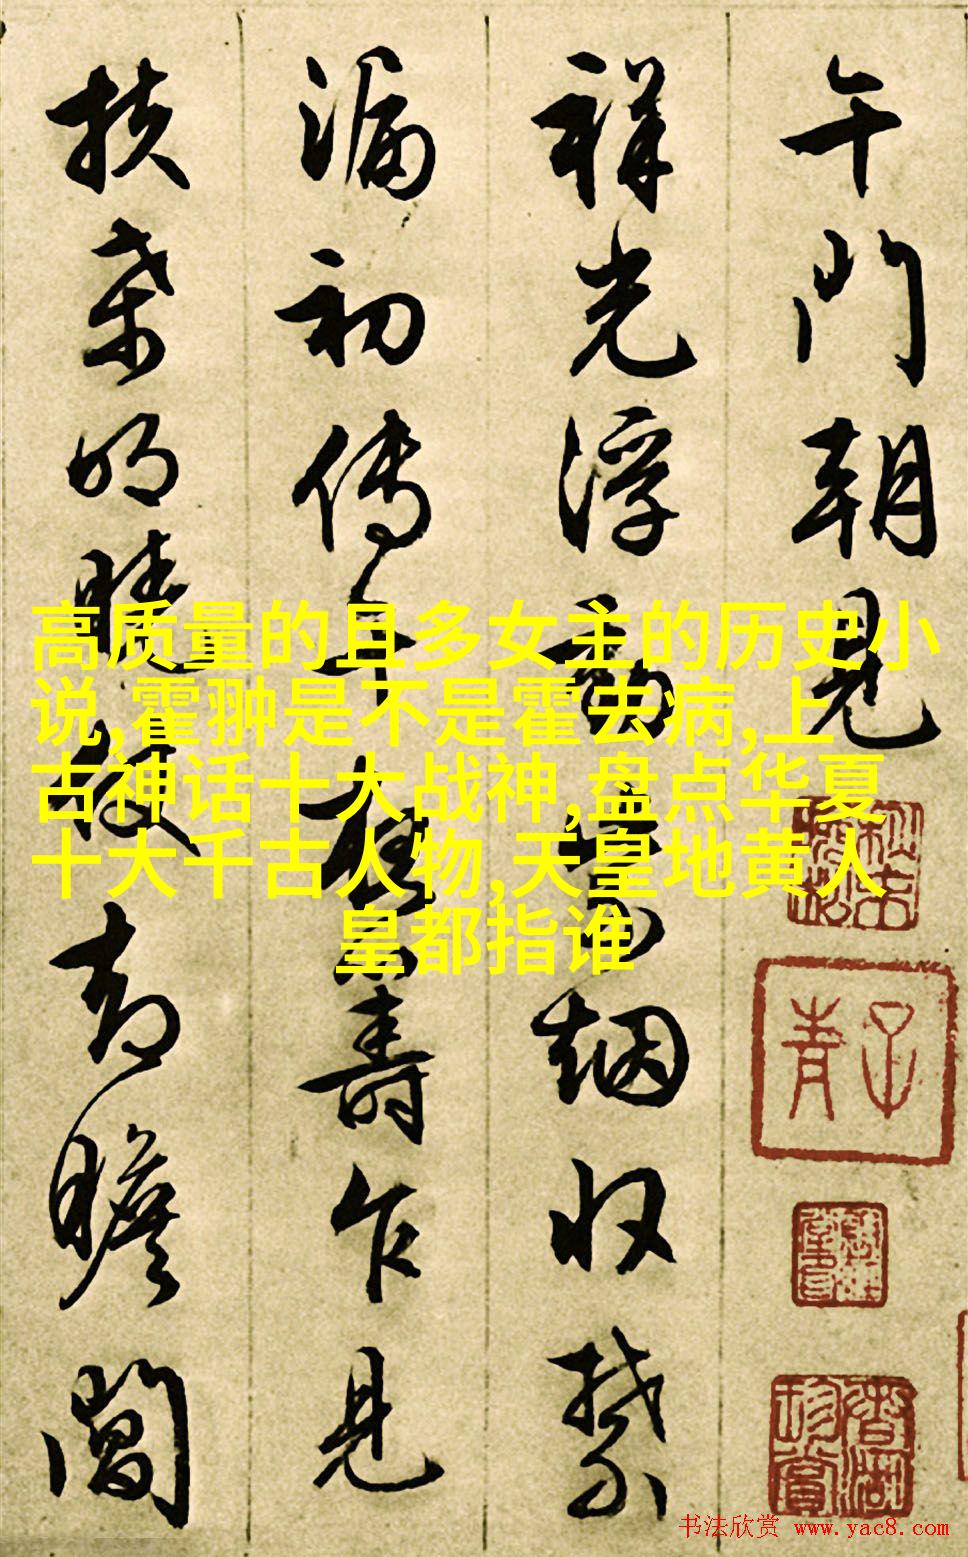 午門朝見
祥光浮烟收禁
漏初传籌乍見
扶桑明曉仗却瞻閶
高质量的且多女主的历史小
说,霍翀是不是霍去病,上
古神话十大战神,盘点华夏
十大千古人物,天皇地黄人
皇都指谁
子青
书法欣赏 www.yac8.com